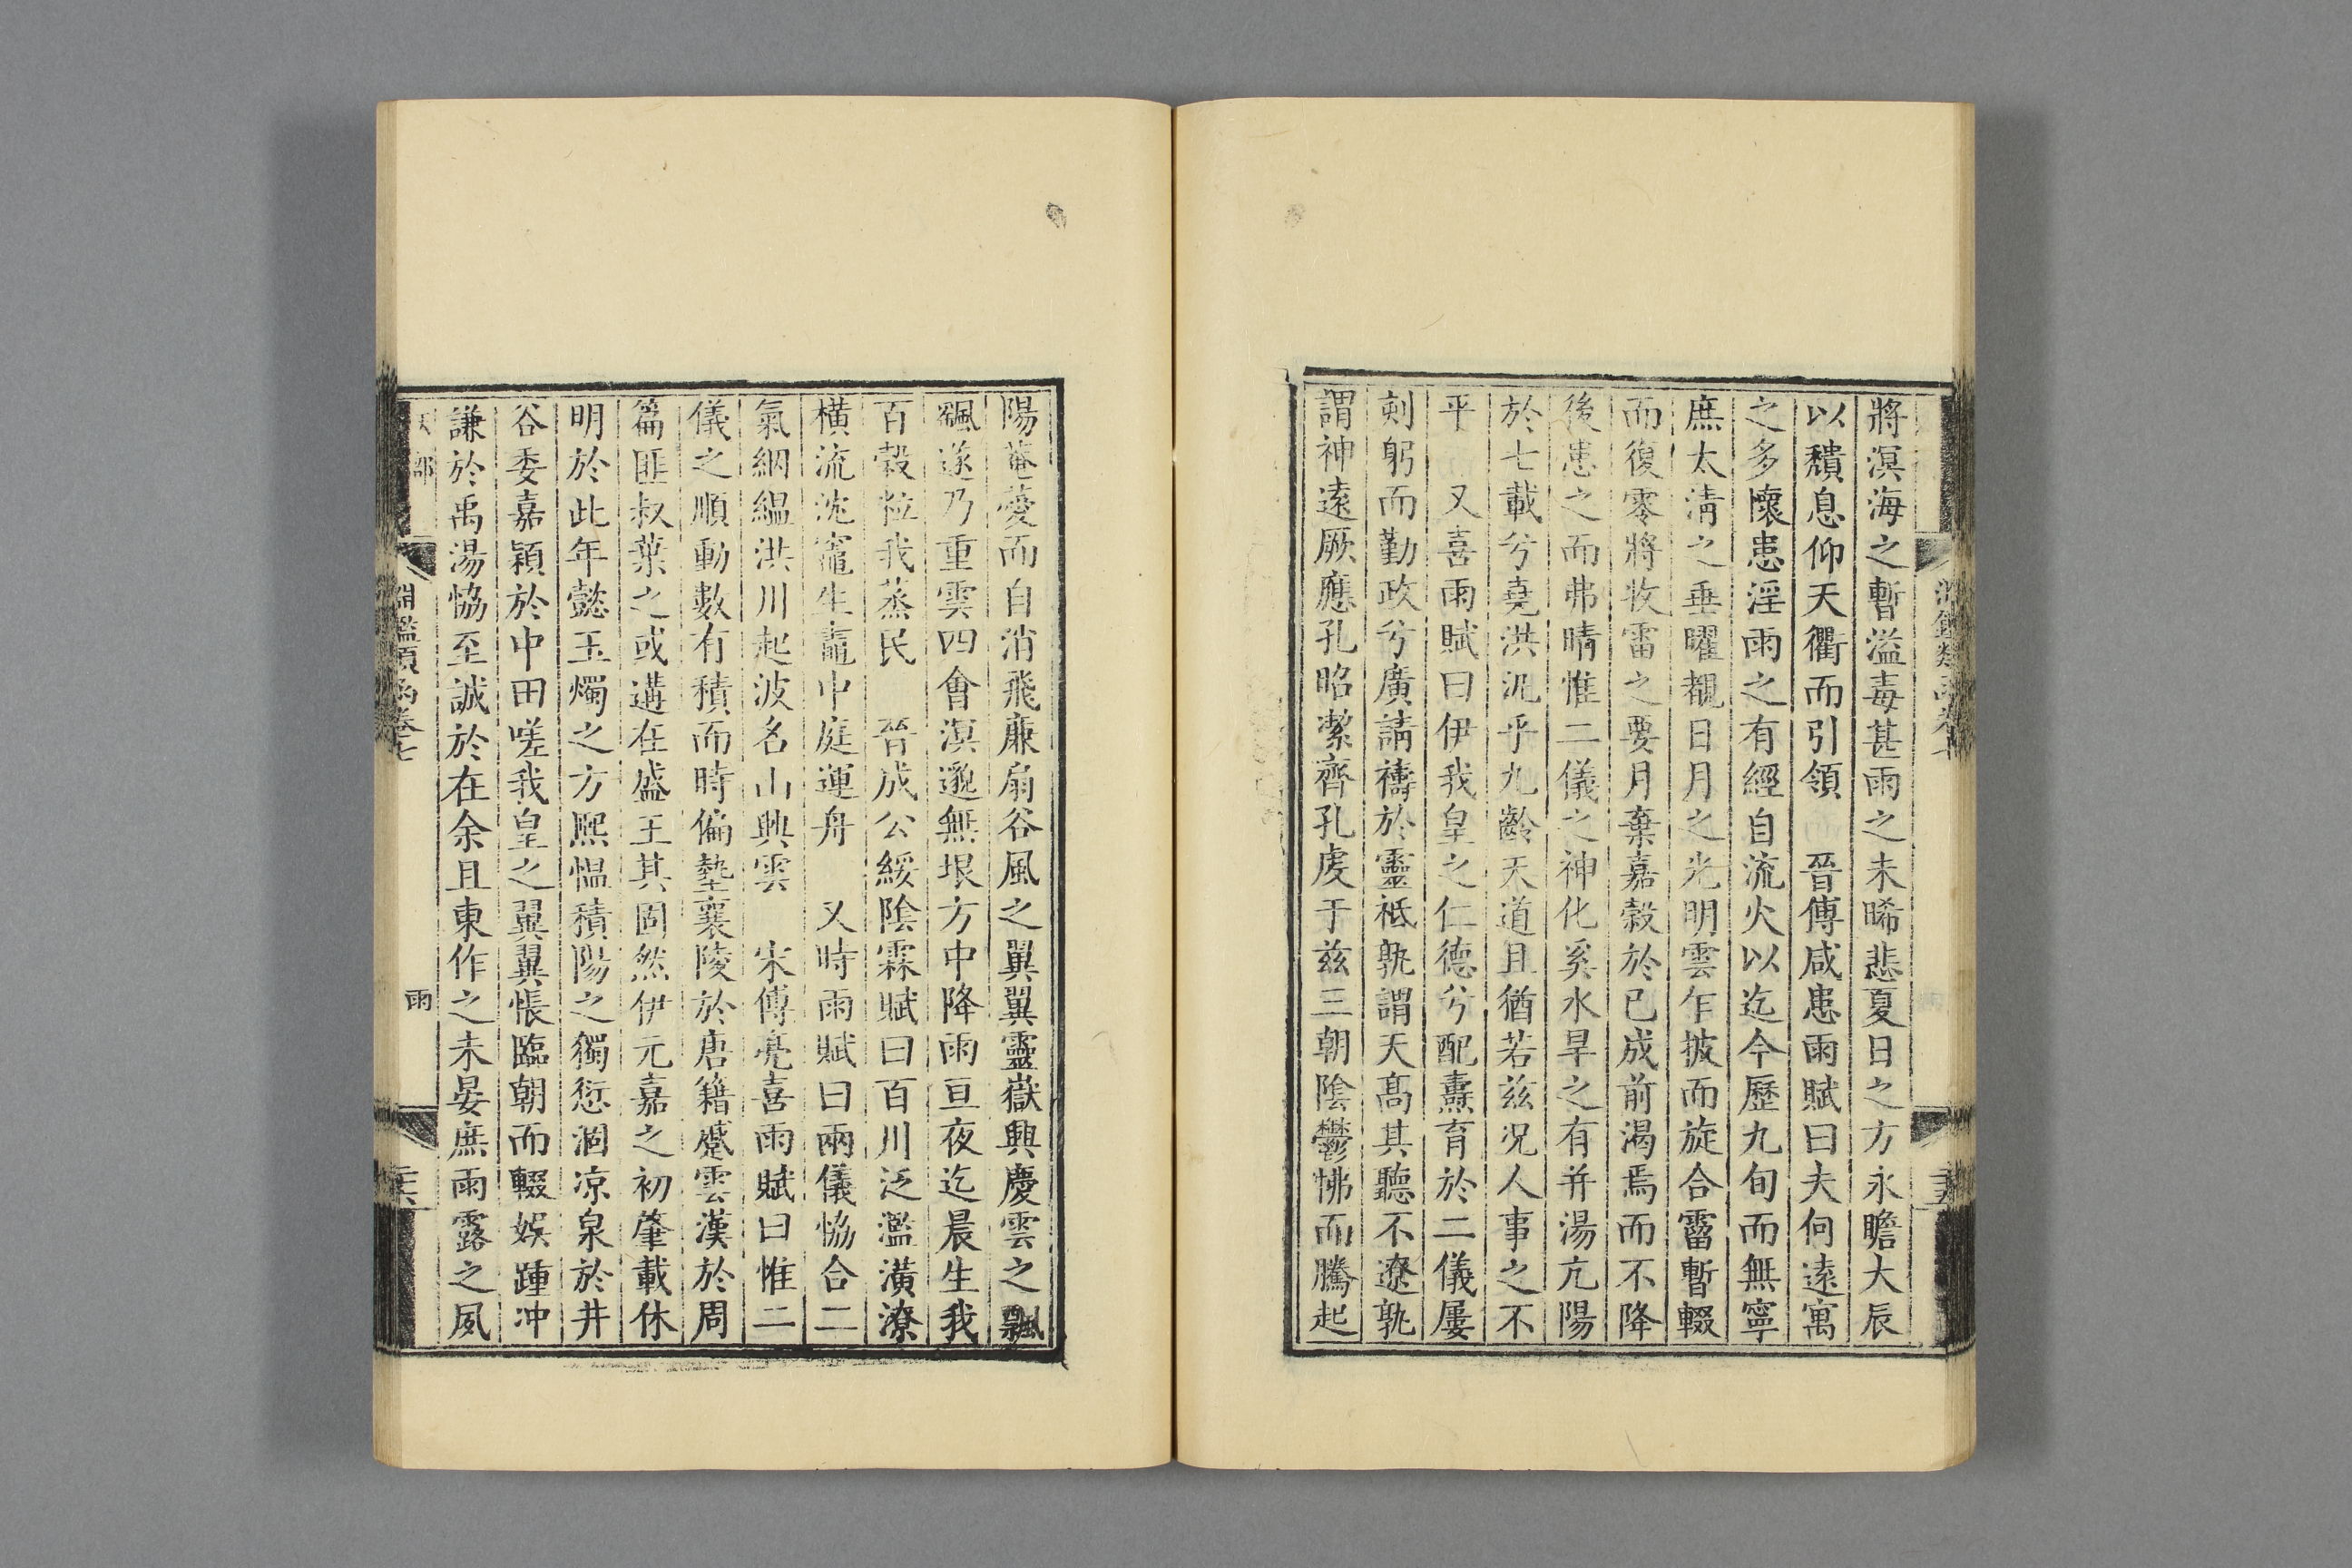 將溟海之暫溢毒甚雨之未晞悲夏日之方永瞻大辰
以穨息仰天衢而引領　晉傅咸患雨賦曰夫何遠寓
之多懷患淫雨之有經自流火以迄今歷九旬而無寧
庶太清之垂曜覩日月之光明雲乍披而旋合霤暫輟
而復零將收雷之要月棄嘉穀於已成前渴焉而不降
後患之而弗晴惟二儀之神化奚水旱之有并湯亢陽
於七載兮堯洪汎乎九齡天道且猶若兹况人事之不
平　又喜雨賦曰伊我皇之仁德兮配燾育於二儀屢
刻躬而勤政兮廣請禱於靈祇孰謂天髙其聽不遼孰
謂神遠厥應孔昭潔齊孔虔于兹三朝陰鬱怫而騰起
陽菴薆而自消飛廉扇谷風之翼翼靈嶽興慶雲之飄
颻遂乃重雲四會溟邈無垠方中降雨亘夜迄晨生我
百穀粒我蒸民　晉成公綏陰霖賦曰百川泛濫潢潦
橫流沈竈生鼃中庭運舟　又時雨賦曰兩儀恊合二
氣絪縕洪川起波名山興雲　宋傅亮喜雨賦曰惟二
儀之順動數有積而時偏墊襄陵於唐籍蹙雲漢於周
篇匪叔葉之或遘在盛王其固然伊元嘉之初肇載休
明於此年懿玉燭之方熙愠積陽之獨愆涸凉泉於井
谷委嘉穎於中田嗟我皇之翼翼悵臨朝而輟娱踵冲
謙於禹湯恊至誠於在余且東作之未晏庶雨露之夙
天部
淵鑑類函卷七
雨
二十六